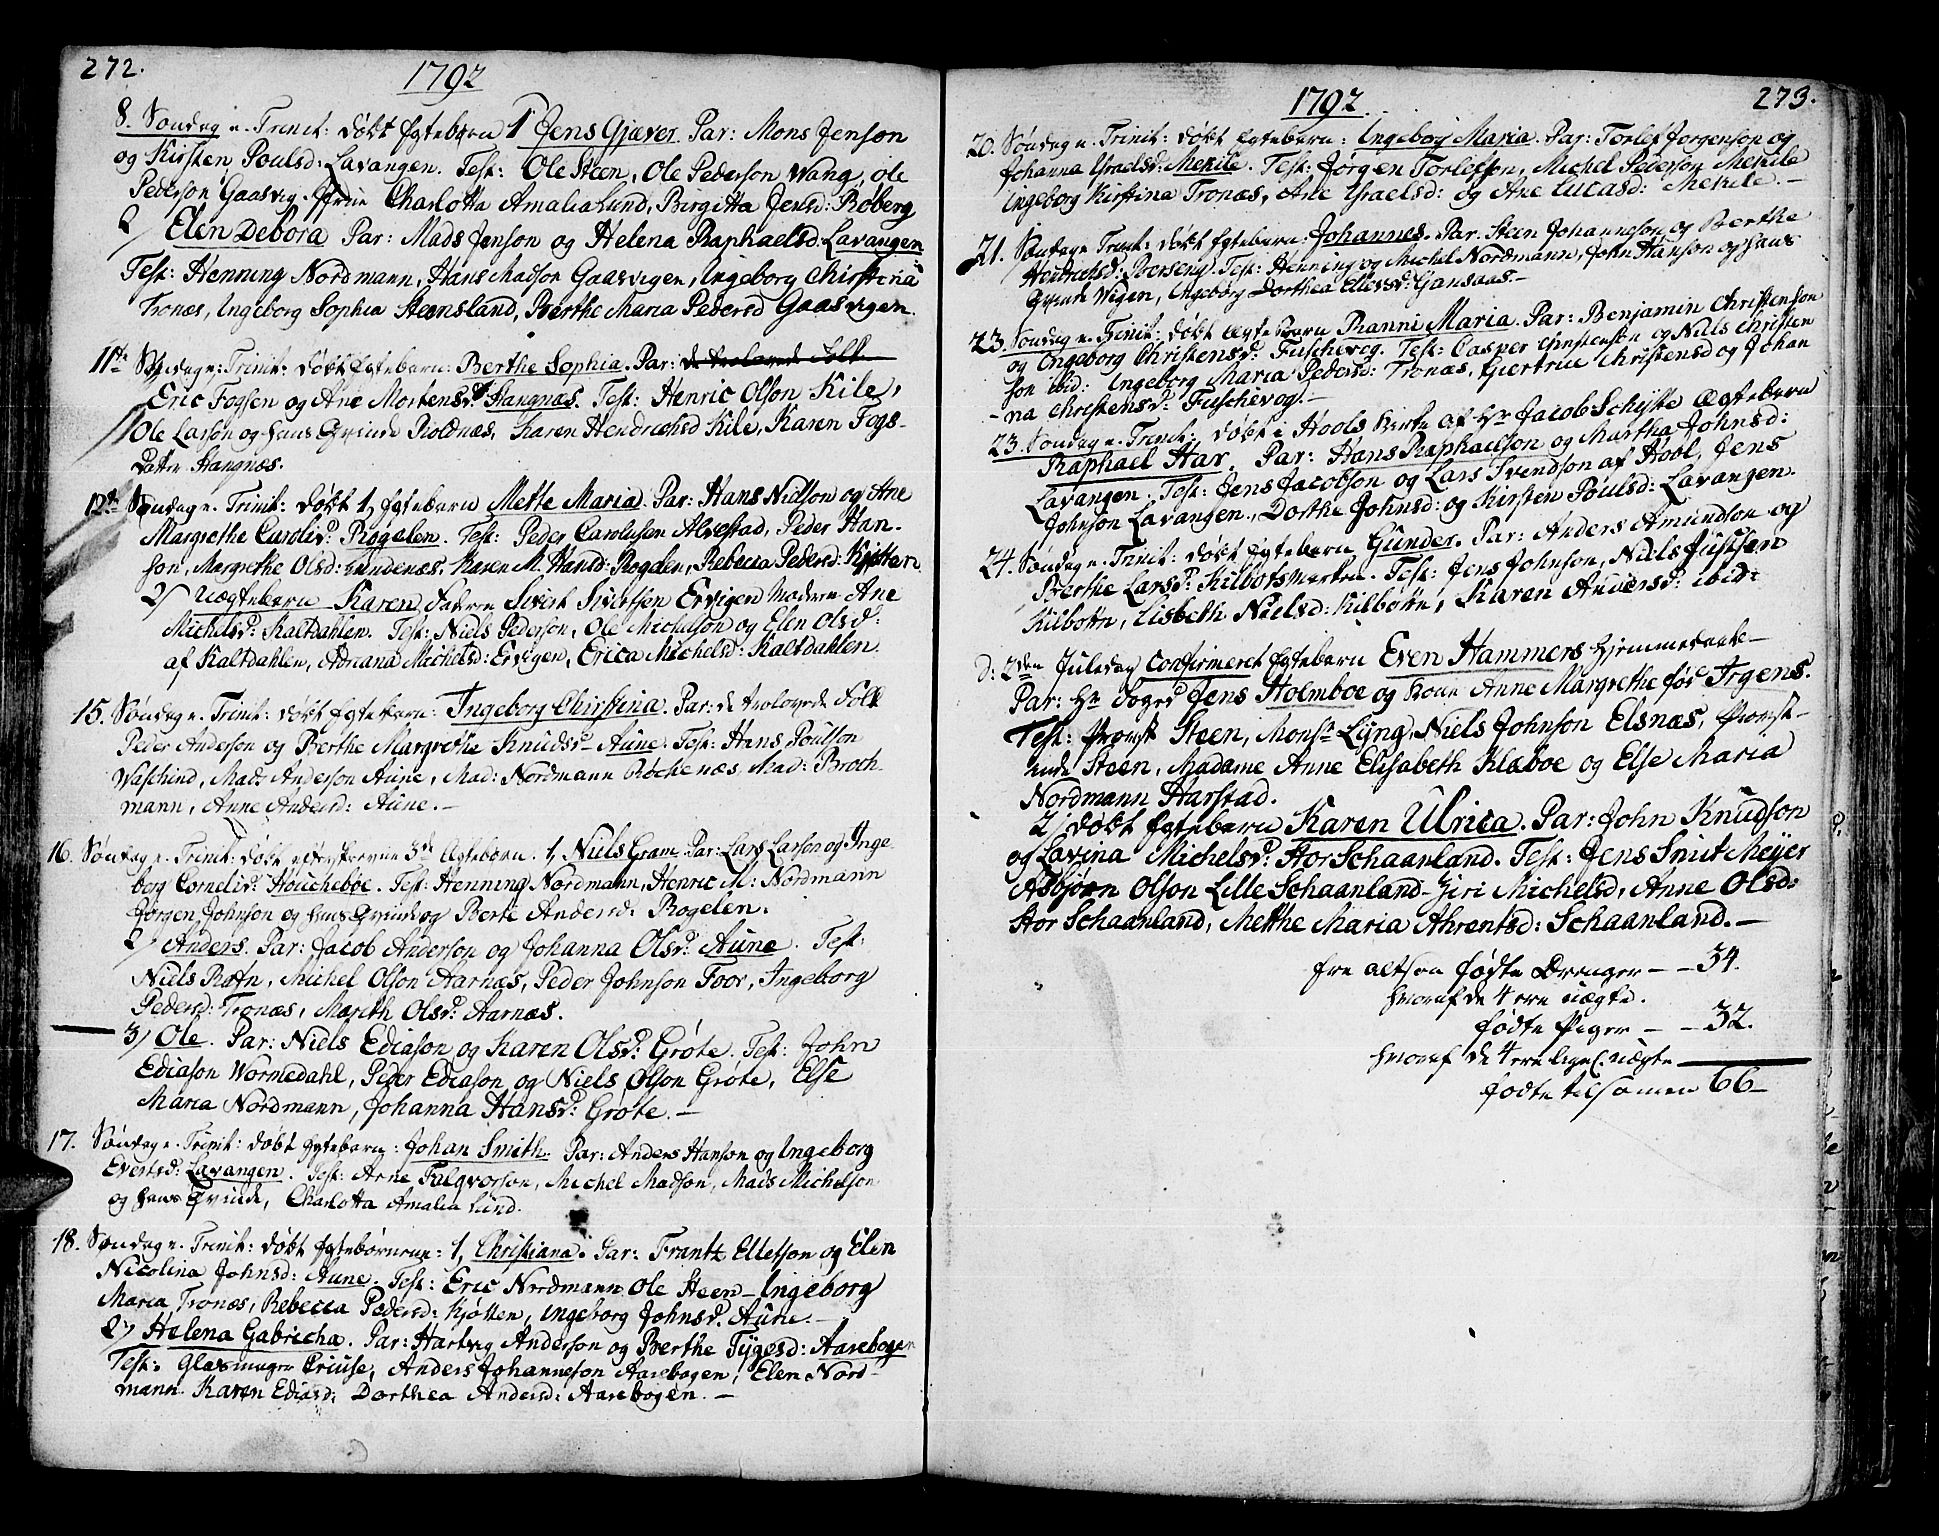 272.
1792
8. Søndag e. Trinit: døbt Egtebørn 1 Jens Gjæver. Par: Mons Jenson
og Kirsten Poulsd: Lavangen. Test: Ole Steen, Ole Pederson Wang, Ole
Pederson Gaasvig. Charlotta Amalia Lund, Birgitta Jensd: Roberg
2/ Elen Debora Par: Mads Jenson og Helena Raphaelsd: Lavangen
Test: Henning Nordmann, Hans Madson Gaasvigen, Ingeborg Christina
Tronæs, Ingeborg Sophia Steensland, Berthe Maria Pedersd Gaasvigen.
11te Søndag e: Trinit: døbt Egtebarn: Berthe Sophia. Par: de trolovede Folk
Eric Fogsen og Ane Mortensd: Stangnæs. Test: Henric Olson Kile,
Ole Larson og hans Qvinde Roldnæs, Karen Hendrichsd Kile, Karen Fogs-
Dater Stangnæs.
12te Søndag e. Trinit: døbt 1, Egtebarn Mette Maria. Par: Hans Nidson og Ane
Margrethe Carlivd: Rogelen. Test: Peder Carelusen Alvestad, Peder Han-
son, Margrethe Olsd: Sundenæs. Karen M. Hansd: Rogelen, Rebecca Pedersd: Kjøtten.
2/ Uægtebarn Karen, Faderen Sivert Sivertsen Ervigen Moderen Ane
Michelsd: Kaltdahlen. Test: Niels Pederson, Ole Michelson og Elen Olsd:
af Kaltdahlen, Adriana Michelsd: Ervigen, Erica Michelsd: Kaltdahlen
15. Søndag e. Trinit: døbt Egtebarn: Ingeborg Christina. Par: de trolovede Folk
Peder Anderson og Berthe Margrethe Knudsd: Aune. Test: Hans Poulson
Waschind, Mads Anderson Aune, Mad: Nordmann Røchenæs, Mad: Broch
mann, Anne Andersd: Aune.-
16. Søndag e. Trinit: døbt efterskrevne 3de Ægtebørn. 1, Niels Cram. Par: Lars Larson og Inge
berg Cornelivd: Houcheboe. Test: Henning Nordmann, Henric M: Nordmann
Jørgen Johnson og hans Qvinde og Berte Andersd: Rogelen.
2/ Anders. Par: Jacob Anderson og Johanna Olsd: Aune. Test:
Niels Rafn, Michel Olson Aarnæs, Peder Johnson Foor, Ingeborg
Pedersd: Tronæs, Marith Olsd: Aarnæs.
3/ Ole. Par: Niels Ediason og Karen Olsd: Grøte. Test: John
Ediason Wormedahl, Peder Ediason og Niels Olson Grøte, Else
Maria Nordmann, Johanna Hansd: Grøte.-
17. Søndag e. Trinit: døbt Egtebarn: Johan Smith. Par: Anders Hanson og Ingeborg
Evertsd: Lavangen. Test: Arne Falqvorson, Michel Madson, Mads Michelson
og hans Qvinde, Charlotta Amalia Lund.
18. Søndag e. Trinit: døbt Egtebørnene: 1, Christiana. Par: Frantz Ellefson og Elen
Nicolina Johnsd: Aune. Test: Eric Nordmann Ole Steen- Ingeborg
Maria Tronæs, Rebecca Pedersd: Kjøtten, Ingeborg Johnsd. Aune.-
2/ Helena Gabricha. Par: Hartvig Anderson og Berthe Tygesd: Aarebogen
Test: Glasmager Criuse, Anders Johanneson Aarebogen, Elen Nord-
mann. Karen Ediasd: Dorthea Andersd: Aarebogen.-
1792.
273.
20. Søndag e. Trinit: døbt Egtebarn: Ingeborg Maria. Par: Torlef Jørgenson og
Johanna Israelsd: Mekile. Test: Jørgen Torlefson, Michel Pederson Mekile
Ingeborg Kirstina Tronæs, Ane Israelsd: og Ane Lucasd: Mekile.-
21. Søndag e. Trinit: døbt Egtebarn: Johannes. Par: Steen Johanneson og Berthe
Hendrichsd: Berseng. Test: Henning og Michel Nordmann, John Hanson og hans
Qvinde Wigen, Ingeborg Dorthea Ellevsd: Gansaas.-
23. Søndag e. Trinit: døbt Ægtebarn Ranni Maria. Par: Benjamin Christenson
og Ingeborg Christensd: Fuschevog. Test: Casper Christensen og Niels Christen
son ibid: Ingeborg Maria Pedersd: Tronæs, Giertrue Christensd og Johan
-na Christensd: Fuschevog.-
23. Søndag e. Trinit: døbt i Hools Kirke af Hr Jacob Schytte Ægtebarn
Raphael Star. Par: Hans Raphaelson og Martha Johnsd:
Lavangen. Test: Jens Jacobson og Lars Svendson af Hool, Jens
Johnson Lavangen., Dorthe Johnsd: og Kirsten Poulsd: Lavangen.
24. Søndag e. Trinit: døbt Egtebarn Gunder. Par: Anders Amundson og
Berthe Larsd: Kilbotsmarken. Test: Jens Johnson, Niels Justsen
Kilbotn, Lisbeth Nielsd: Kilbotn, Karen Andersd: ibid:
d: 2den Juledag Confirmeret Egtebarn Even Hammers hjemmedøbt-
Par: Hr Foged Jens Holmboe og Kone Anne Margrethe fød Irgens.
Test: Provst Steen, Monsr Lyng, Niels Johnson Elsnæs, Provst-
inde Steen, Madame Anne Elisabeth Klæboe og Else Maria
Nordmann Harstad.
2/ døbt Egtebarn Karen Ulrica. Par: John Knudson
og Lavina Michelsd: Stor Schaanland. Test: Jens Smit Meyer
Asbjørn Olson Lille Schaanland. Giri Michelsd, Anne Olsd:
Stor Schaanland, Mette Maria Ahrentsd: Schaanland.-
Ere altsaa fødte Drenger - - 34.
hvoraf de 4 ere uægte.
fødte Piger - - 32.
hvoraf de 4 ere ligel. uægte
fødte tilsamen 66-